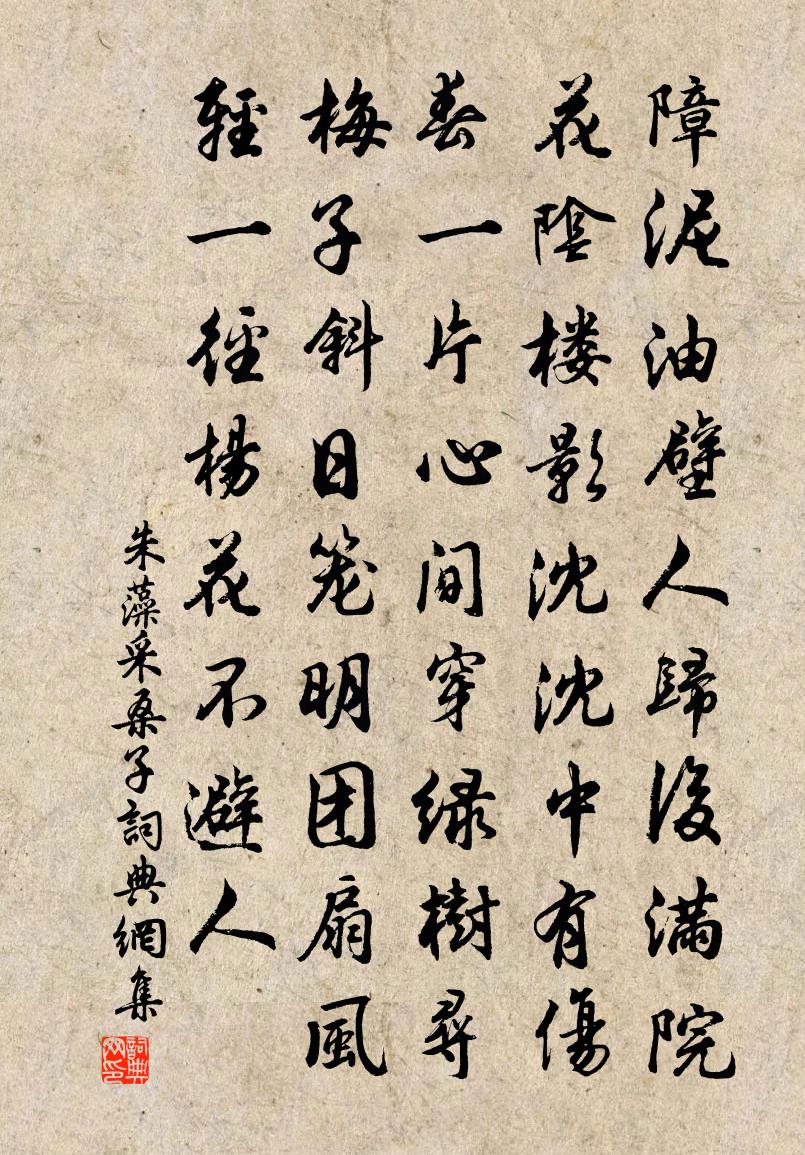 障泥油壁人歸後滿院
花陰楼影沈沈中有傷
春一片心间穿绿樹尋
梅子斜日笼明团扇風
輕一徑楊花不避人
朱藻采桑子詞典網集
詞典
网印